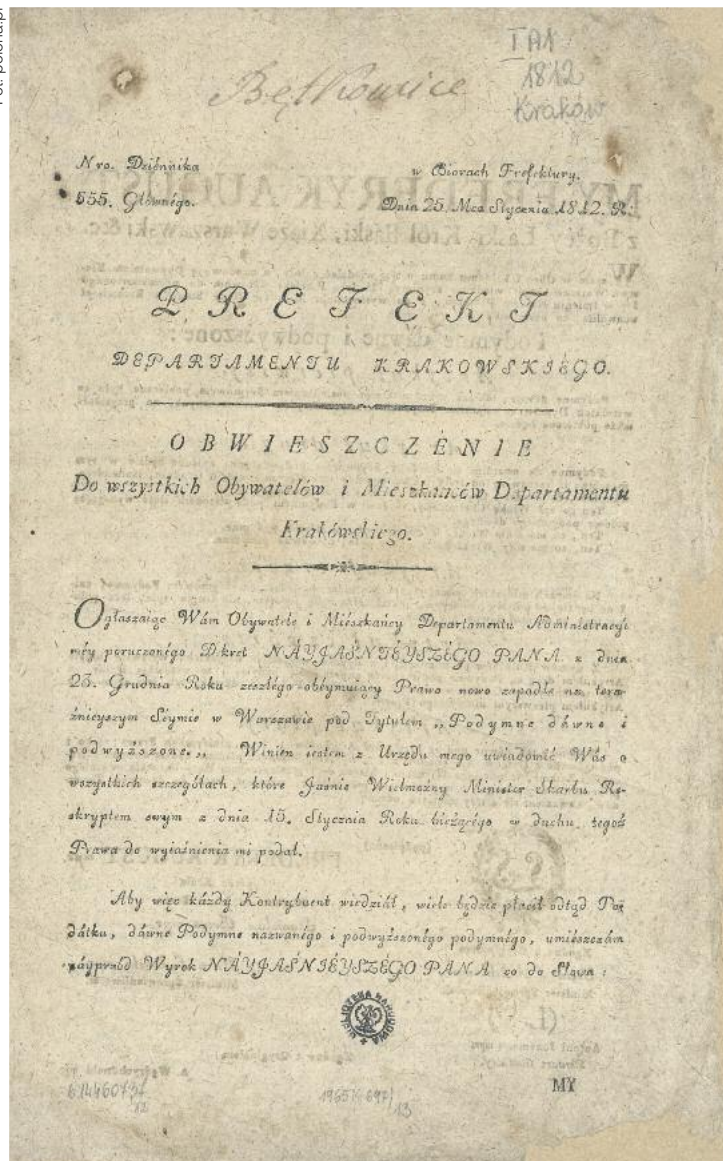 Fot. polona.pl
I A1
1812
Kraków
Bętkowice
Nro. Dziénnika
w Biorach Prefektury.
555. Głównégo.
Dnia 25. Mca Stycznia 1812. R:
PREFEKT
DEPARTAMENTU KRAKOWSKIÉGO.
OBWIESZCZÉNIE
Do wszystkich Obywatelów i Mieszkańców Departamentu
Krakówskiego.
Ogłaszaiąc Wám Obywatele i Miészkańcy Departamentu Administracyi
méy poruczonégo Dekret NÁYJAŚNIÉYSZÉGO PANA z dnia
23. Grudnia Roku zeszłégo obéymuiący Prawo nowo zapadłe na tera-
źnieyszym Seymie w Warszawie pod Tytułem „Podymne dáwne i
podwyższone.„ Winien iestem z Urzędu mego uwiadomić Wás o
wszystkich szczegółach, które Jaśnie Wielmożny Minister Skarbu Re-
skryptem swym z dnia 15. Stycznia Roku biéżącégo w duchu tegoż
Prawa do wyiaśnienia mi podał.
Aby więc káżdy Kontrybuent wiedział, wiele będzie płacił odtąd Po-
dátku, dáwne Podymne nazwanégo i podwyższonégo podymnégo, umiészczám
náyprzód Wyrok NÁYJAŚNIÉYSZÉGO PANA co do Słowa:
BIBLIOTEKA NARODOWA
MY
1965 K 697/
13